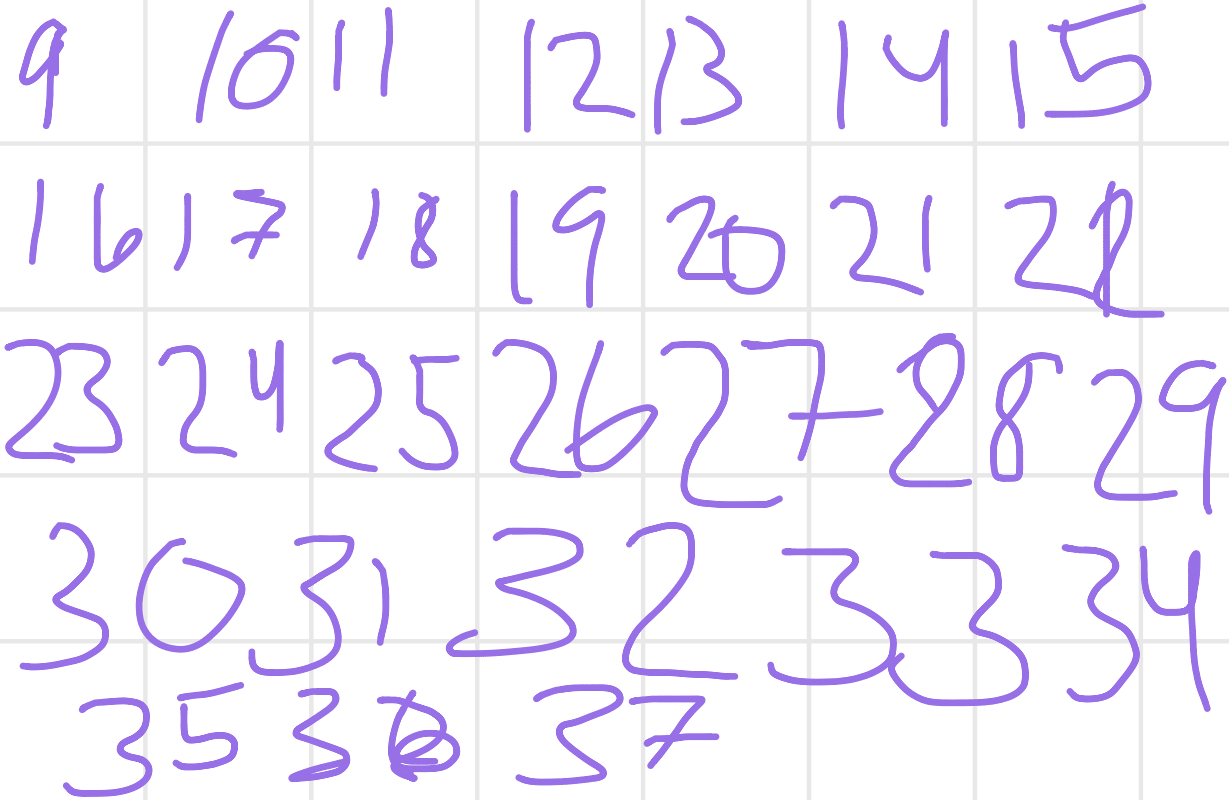 9 10 11 12 13 14 15
16 17 18 19 20 21 22
23 24 25 26 27 28 29
30 31 32 33 34
35 36 37